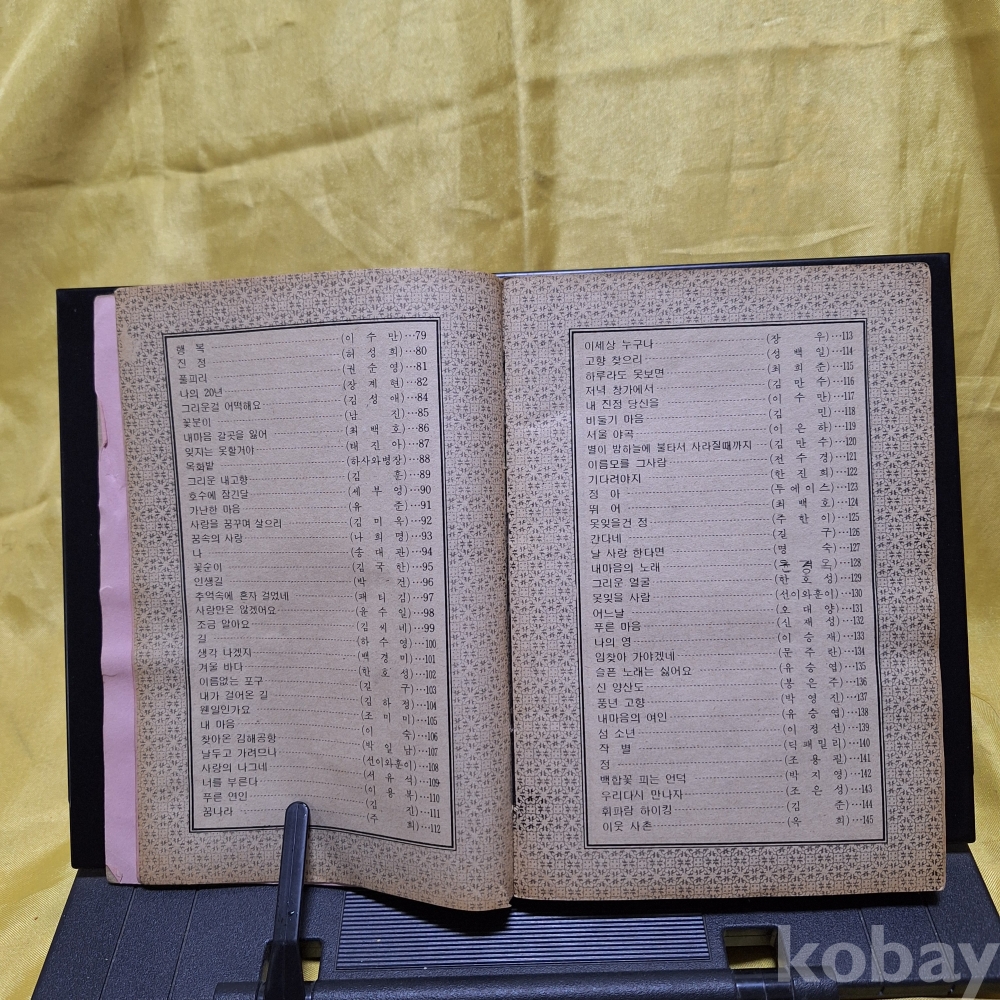 행 복 (이 수 만)…79
진 정 (허 성 희)…80
풀피리 (권 순 영)…81
나의 20년 (장 계 현)…82
그리운걸 어떡해요 (김 성 애)…84
꽃분이 (남 진)…85
내마음 갈곳을 잃어 (최 백 호)…86
잊지는 못할거야 (태 진 아)…87
목화밭 (하사와병장)…88
그리운 내고향 (김 훈)…89
호수에 잠긴달 (세 부 엉)…90
가난한 마음 (유 준)…91
사랑을 꿈꾸며 살으리 (김 미 옥)…92
꿈속의 사랑 (나 희 명)…93
나 (송 대 관)…94
꽃순이 (김 국 한)…95
인생길 (박 건)…96
추억속에 혼자 걸었네 (패 티 김)…97
사랑만은 않겠어요 (윤 수 일)…98
조금 알아요 (김 씨 네)…99
길 (하 수 영)…100
생각 나겠지 (백 경 미)…101
겨울 바다 (한 호 성)…102
이름없는 포구 (길 구)…103
내가 걸어온 길 (김 하 정)…104
웬일인가요 (조 미 미)…105
내 마음 (이 숙)…106
찾아온 김해공항 (박 일 남)…107
날두고 가려므나 (선이와훈이)…108
사랑의 나그네 (서 유 석)…109
너를 부른다 (이 용 복)…110
푸른 연인 (김 진)…111
꿈나라 (주 희)…112
이세상 누구나 (장 우)…113
고향 찾으리 (성 백 일)…114
하루라도 못보면 (최 희 준)…115
저녁 창가에서 (김 만 수)…116
내 진정 당신을 (이 수 만)…117
비둘기 마음 (김 민)…118
서울 야곡 (이 은 하)…119
별이 밤하늘에 불타서 사라질때까지 (김 만 수)…120
이름모를 그사람 (전 수 경)…121
기다려야지 (한 진 희)…122
정 아 (투에이스)…123
뛰 어 (최 백 호)…124
못잊을건 정 (주 한 이)…125
간다네 (길 구)…126
날 사랑 한다면 (명 숙)…127
내마음의 노래 …128
그리운 얼굴 (한 호 성)…129
못잊을 사람 (선이와훈이)…130
어느날 (오 대 양)…131
푸른 마음 (신 재 성)…132
나의 영 (이 승 재)…133
임찾아 가야겠네 (문 주 란)…134
슬픈 노래는 싫어요 (유 승 엽)…135
신 양산도 (봉 은 주)…136
풍년 고향 (박 영 진)…137
내마음의 여인 (유 승 엽)…138
섬 소년 (이 정 선)…139
작 별 (딕패밀리)…140
정 (조 용 필)…141
백합꽃 피는 언덕 (박 지 영)…142
우리다시 만나자 (조 은 성)…143
휘파람 하이킹 (김 준)…144
이웃 사촌 (옥 희)…145
kobay